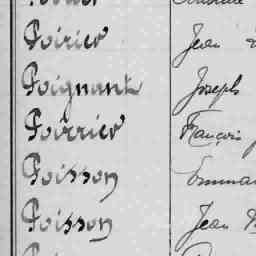 Poirier Jean
Poignant Joseph
Poirrier François
Poisson
Poisson Jean